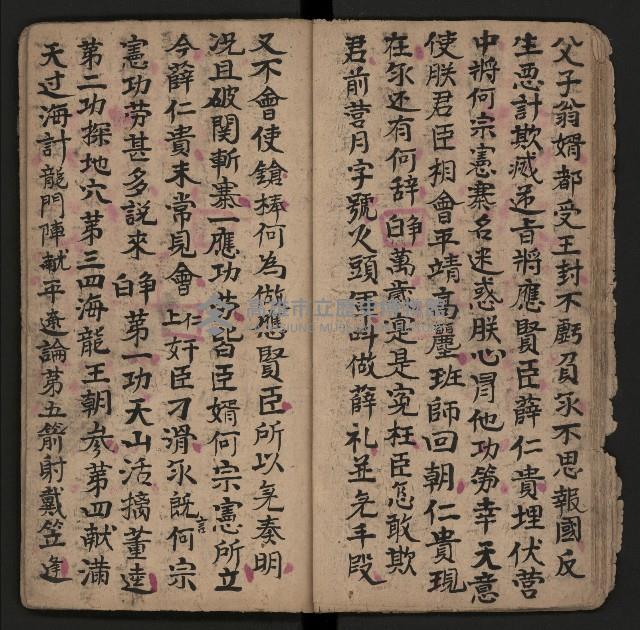 父子翁婿都受王封不虧負永不思報國反
生悪計欺瞞逆旨將應賢臣薛仁貴埋伏營
中將何宗憲寨名迷惑朕心冐他功劳幸天意
使朕君臣相會平靖高麗班師回朝仁貴現
在永还有何辞 净白 萬歲是是寃枉臣怎敢欺
君前营月字號火頭軍叫做薛礼並無手段
又不會使鎗捧何為做應賢臣所以無奏明
况且破関斬寨一應功劳皆臣婿何宗憲所立
今薛仁貴未常見會 仁上 奸臣刁滑永既言何宗
憲功劳甚多説來 净白 第一功天山活擒董逵
第二功探地穴第三四海龍王朝参第四献滿
天过海計龍門陣献平遼論第五箭射戴笠逢